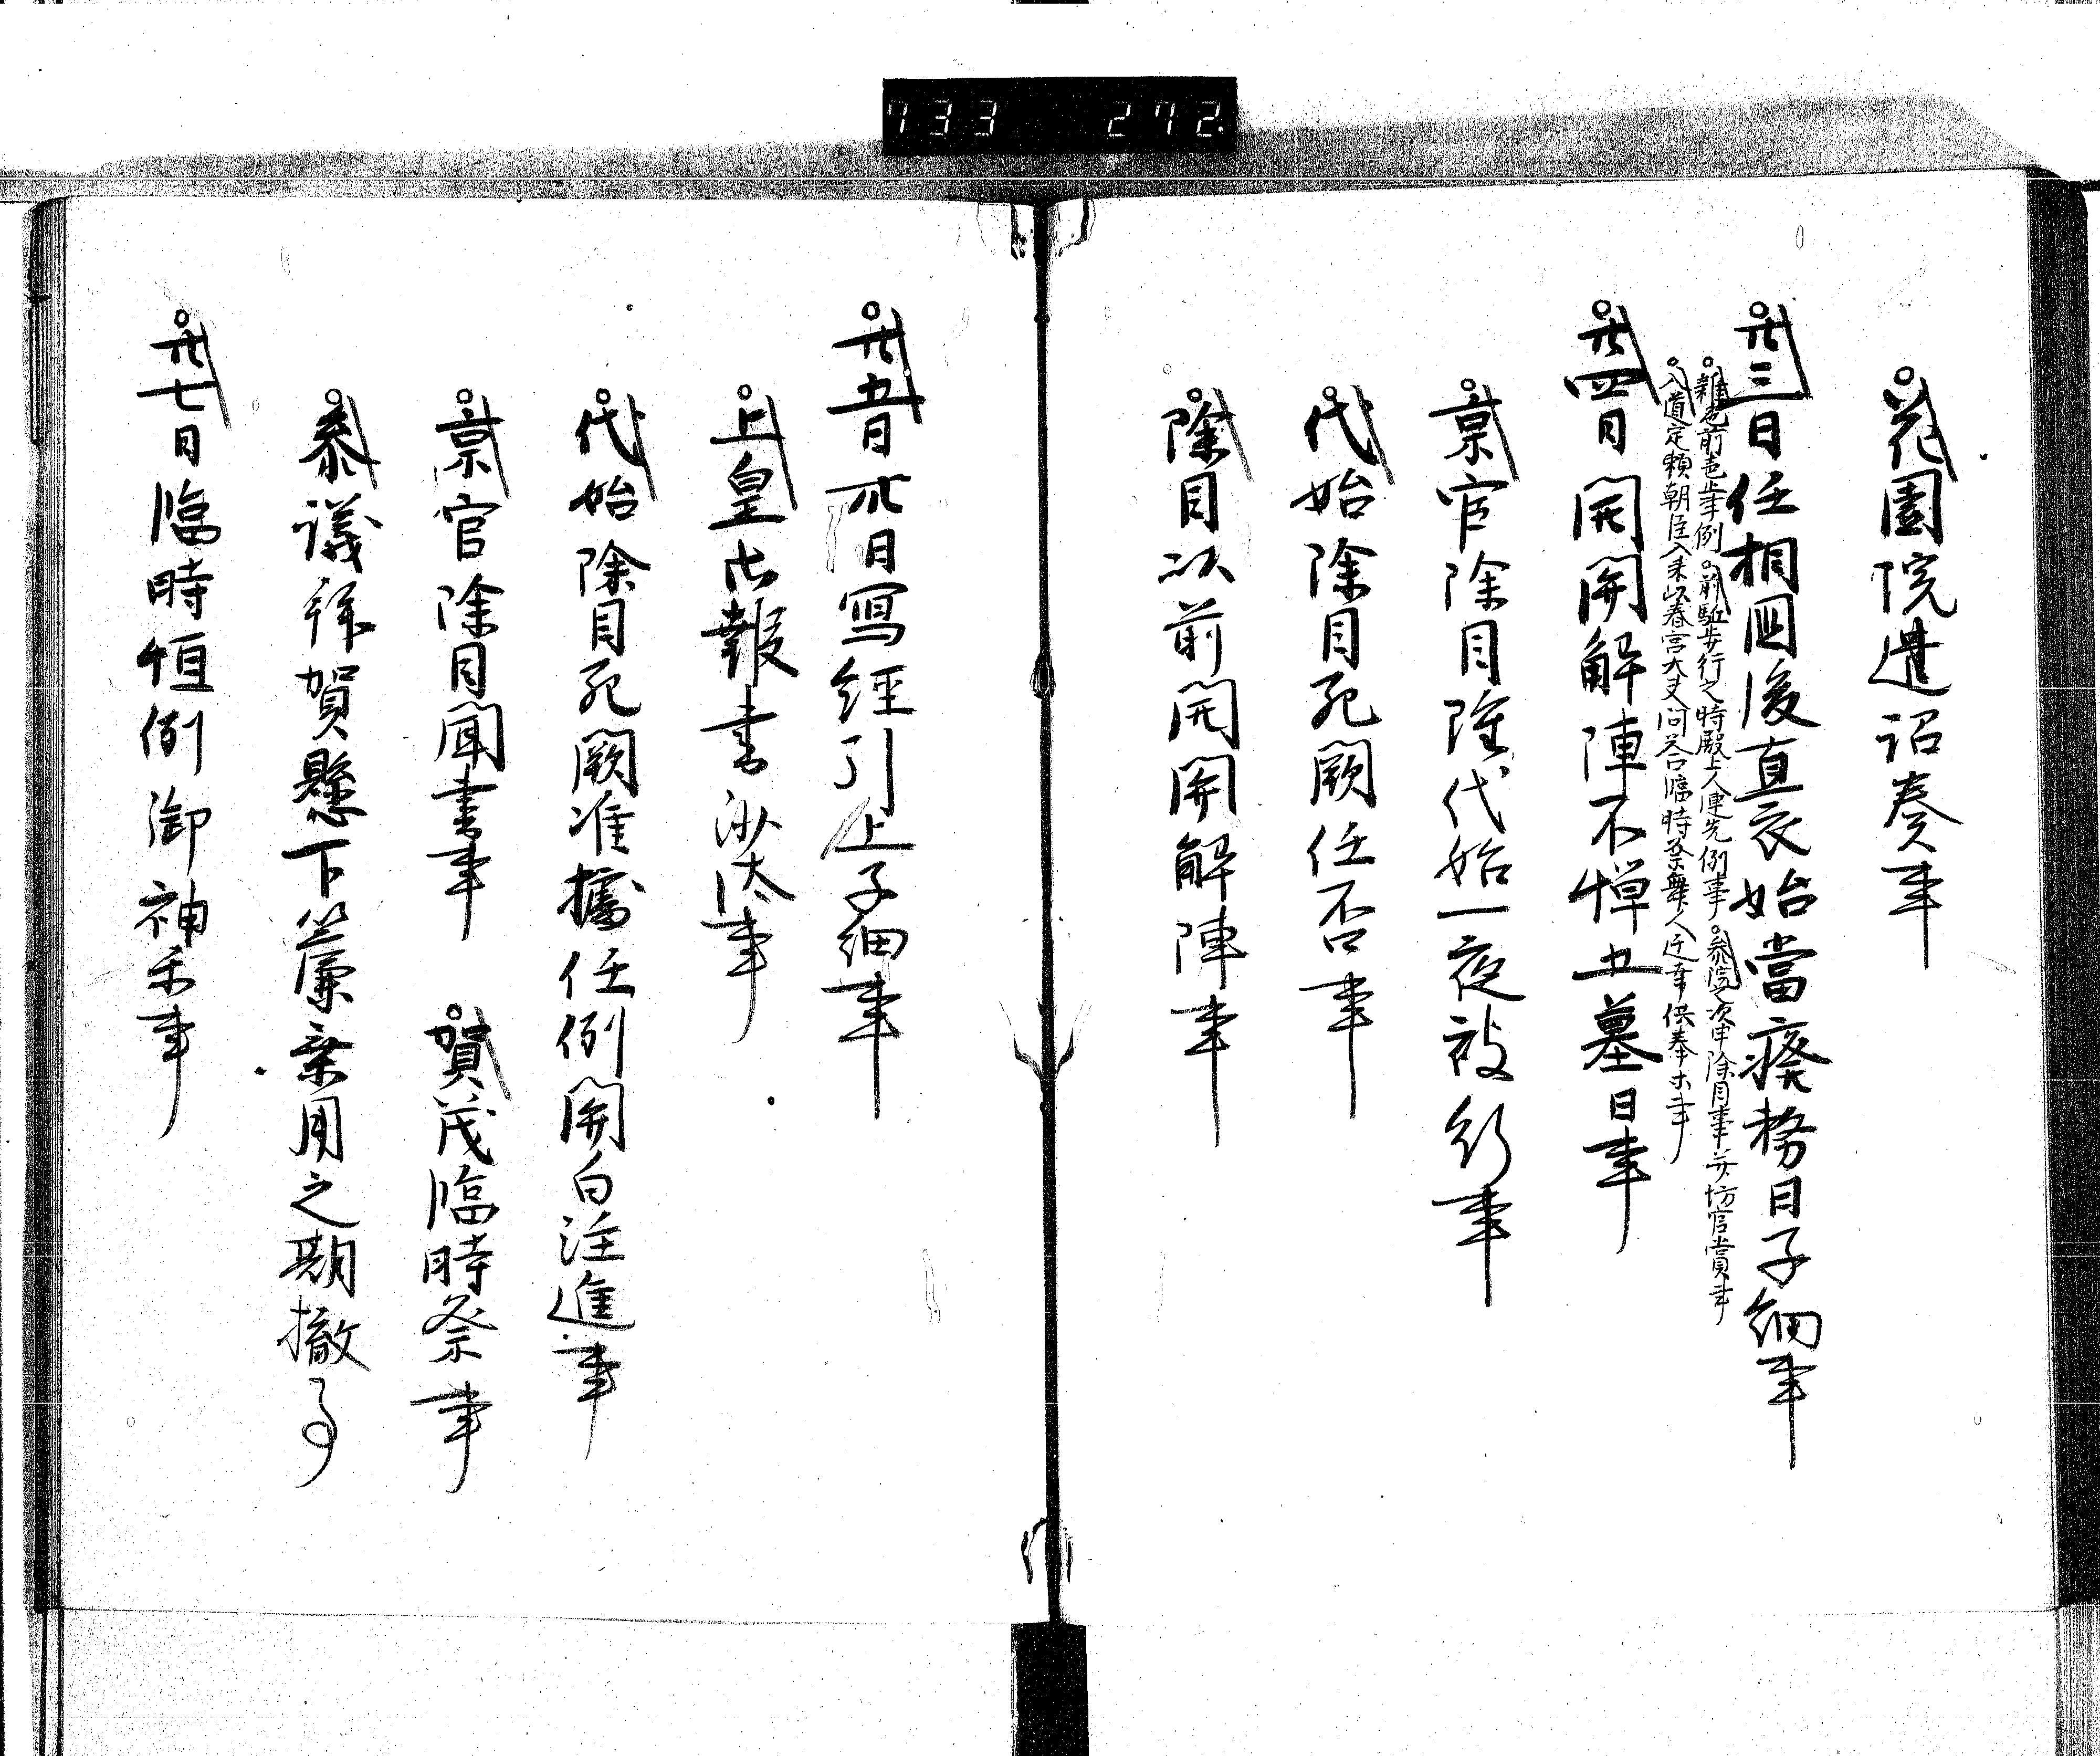 733 272
花園院遺詔奏事
廿三日任相国後直衣始當癈務日子細事
雑色前追歩事例 前駈歩行之時殿上人連先例事 参院之次申除目事并坊官賞事
入道定頼朝臣入来以春宮大夫問答臨時祭舞人近年供奉事
廿四日開関解陣不憚五墓日事
京官除目雖代始一夜被行事
代始除目死闕任否事
除目以前開関解陣事
廿五日 廿六日写経引上子細事
上皇御報書沙汰事
代始除目死闕准據任例関白注進事
京官除目聞書事 賀茂臨時祭事
参議拝賀懸下簾乗用之期撤事
廿七日臨時恒例御神楽事